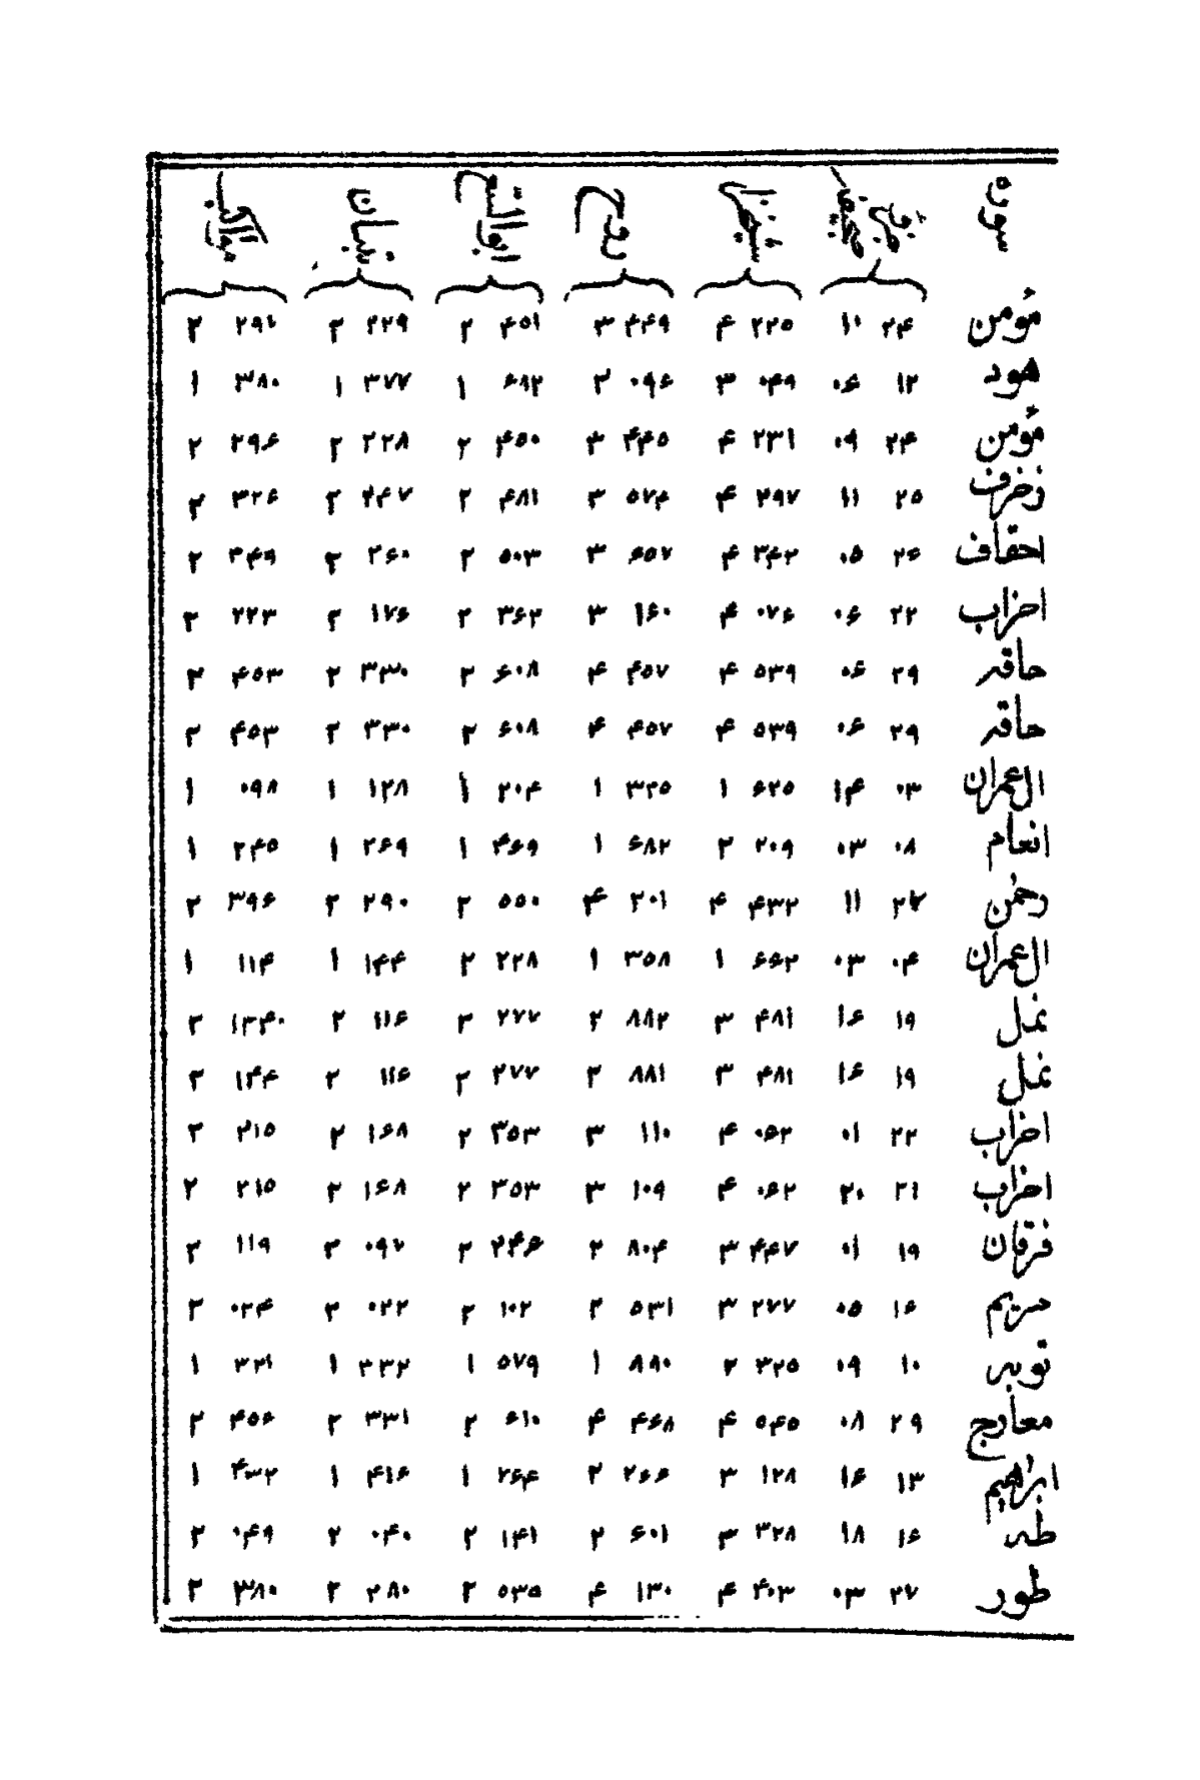 سوره
مؤمن ۲۴ ۱۰ ۲۲۵ ۴ ۴۴۹ ۳ ۴۵۱ ۲ ۲۲۹ ۲ ۲۹۱ ۲
هود ۱۲ ۰۶ ۰۴۹ ۳ ۰۹۶ ۲ ۶۸۲ ۱ ۳۷۷ ۱ ۳۸۰ ۱
مؤمن ۲۴ ۰۹ ۲۳۱ ۴ ۴۴۵ ۳ ۴۵۰ ۲ ۲۲۸ ۲ ۲۹۶ ۲
زخرف ۲۵ ۱۱ ۲۹۷ ۴ ۵۷۴ ۳ ۴۸۱ ۲ ۲۴۷ ۲ ۳۲۶ ۲
احقاف ۲۶ ۰۵ ۳۴۲ ۴ ۶۵۷ ۳ ۵۰۳ ۲ ۲۶۰ ۲ ۳۴۹ ۲
احزاب ۲۲ ۰۶ ۰۷۶ ۴ ۱۶۰ ۳ ۳۶۲ ۲ ۱۷۶ ۲ ۲۲۳ ۲
حاقه ۲۹ ۰۶ ۵۳۹ ۴ ۴۵۷ ۴ ۶۰۸ ۲ ۳۳۰ ۲ ۴۵۳ ۲
حاقه ۲۹ ۰۶ ۵۳۹ ۴ ۴۵۷ ۴ ۶۰۸ ۲ ۳۳۰ ۲ ۴۵۳ ۲
ال عمران ۰۳ ۱۴ ۶۲۵ ۱ ۳۲۵ ۱ ۲۰۴ ۱ ۱۲۸ ۱ ۰۹۸ ۱
انعام ۰۸ ۰۳ ۲۰۹ ۲ ۶۸۲ ۱ ۴۶۹ ۱ ۲۶۹ ۱ ۲۴۵ ۱
رحمن ۲۷ ۱۱ ۴۳۲ ۴ ۲۰۱ ۴ ۵۵۰ ۲ ۲۹۰ ۲ ۳۹۶ ۲
ال عمران ۰۴ ۰۳ ۶۶۲ ۱ ۳۵۸ ۱ ۲۲۸ ۲ ۱۴۴ ۱ ۱۱۴ ۱
نمل ۱۹ ۱۶ ۴۸۱ ۳ ۸۸۲ ۲ ۲۷۷ ۲ ۱۱۶ ۲ ۱۳۴۰ ۲
نمل ۱۹ ۱۶ ۴۸۱ ۳ ۸۸۱ ۲ ۲۷۷ ۲ ۱۱۶ ۲ ۱۴۴ ۲
احزاب ۲۲ ۰۱ ۰۶۲ ۴ ۱۱۰ ۳ ۳۵۳ ۲ ۱۶۸ ۲ ۲۱۵ ۲
احزاب ۲۱ ۲۰ ۰۶۲ ۴ ۱۰۹ ۳ ۳۵۳ ۲ ۱۶۸ ۲ ۲۱۵ ۲
فرقان ۱۹ ۰۱ ۴۴۷ ۳ ۸۰۴ ۲ ۲۴۶ ۲ ۰۹۲ ۲ ۱۱۹ ۲
مریم ۱۶ ۰۵ ۲۷۷ ۳ ۵۳۱ ۲ ۱۰۲ ۲ ۰۲۲ ۲ ۰۲۴ ۲
توبه ۱۰ ۰۹ ۳۲۵ ۲ ۸۸۰ ۱ ۵۷۹ ۱ ۳۳۲ ۱ ۳۲۱ ۱
معارج ۲۹ ۰۸ ۵۴۵ ۴ ۴۶۸ ۴ ۶۱۰ ۲ ۳۳۱ ۲ ۴۵۶ ۲
ابراهیم ۱۳ ۱۶ ۱۲۸ ۳ ۲۶۶ ۲ ۷۶۴ ۱ ۴۱۶ ۱ ۴۳۲ ۱
طه ۱۶ ۱۸ ۳۲۸ ۳ ۶۰۱ ۲ ۱۴۱ ۲ ۰۴۰ ۲ ۰۴۹ ۲
طور ۲۷ ۰۳ ۴۰۳ ۴ ۱۳۰ ۴ ۵۳۵ ۲ ۲۸۰ ۲ ۳۸۰ ۲